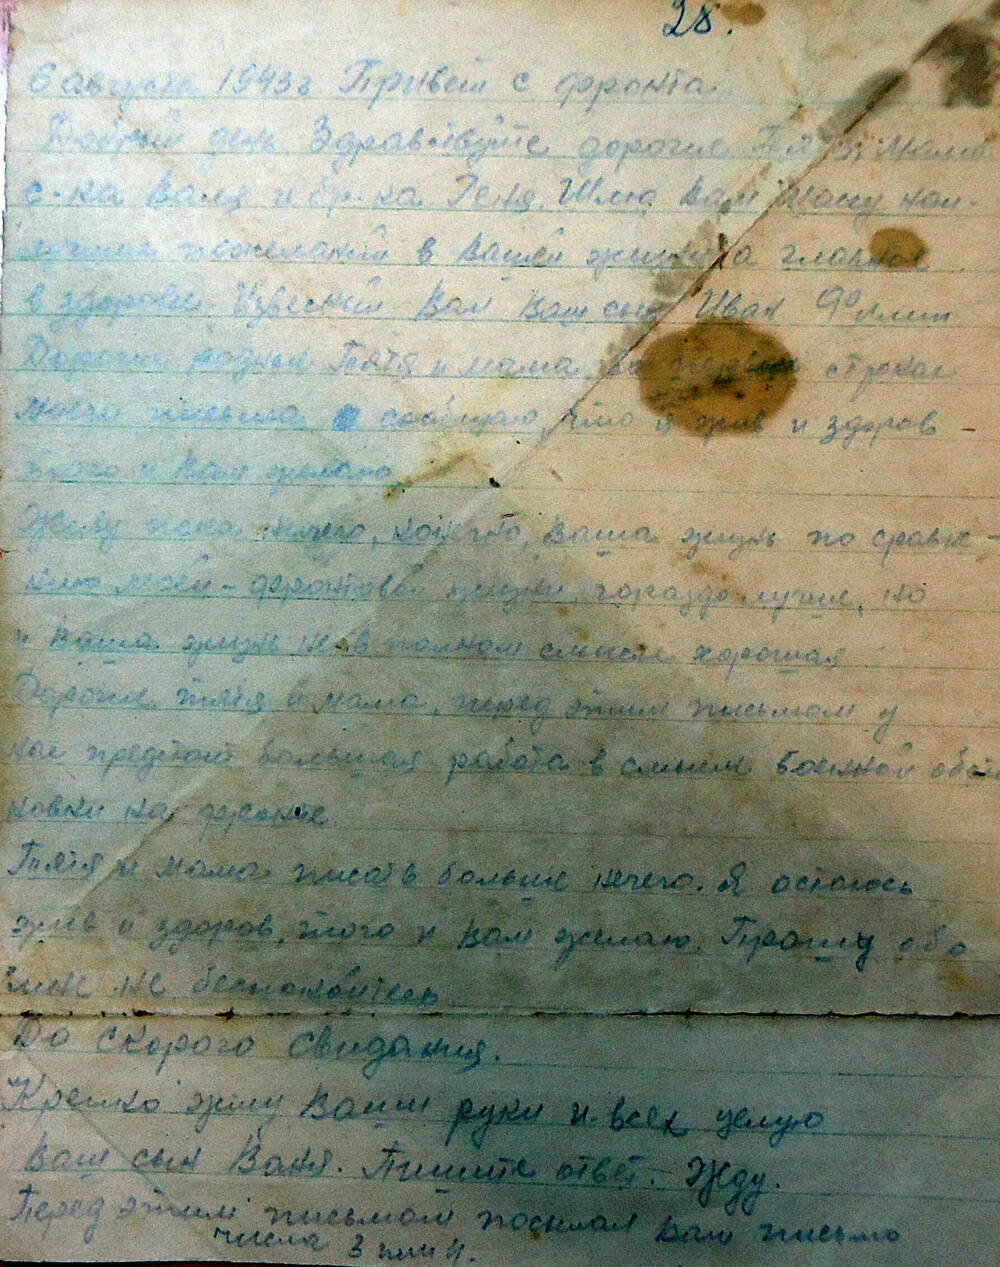 28.
6 августа 1943г Привет с фронта.
Добрый день Здравствуйте дорогие Тятя, мама
с-ка Валя и бр-ка Геня. Шлю Вам массу наи-
лучших пожеланий в Вашей жизни, а главное
в здоровьи. Известный Вам Ваш сын Иван
Дорогие родные Тятя и мама, в первых строках
моего письма сообщаю, что я жив и здоров
того и Вам желаю
Живу пока ничего, конечно, Ваша жизнь по сравне-
нию моей - фронтовой жизни, гораздо лучше, но
и Ваша жизнь не в полном смысле хорошая
Дорогие тятя и мама, перед этим письмом у
нас предстоит большая работа в смысле военной обста
новки на фронте.
Тятя и мама писать больше нечего. Я остаюсь
жив и здоров, того и Вам желаю. Прошу обо
мне не беспокойтесь
До скорого свидания.
Крепко жму Ваши руки и всех целую
Ваш сын Ваня. Пишите ответ. Жду.
Перед этим письмом посылал Вам письмо
числа 3 или 4.